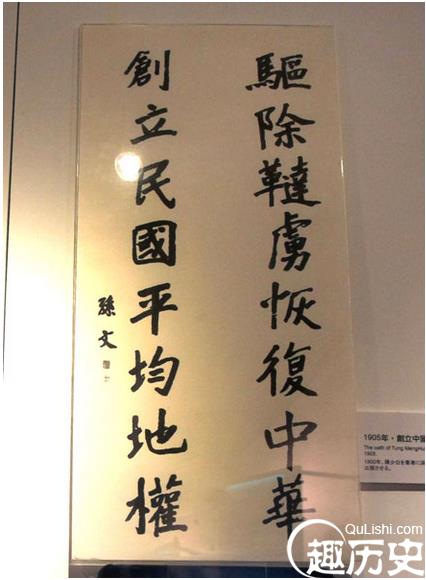 驅除韃虜恢復中華
創立民國平均地權
孫文
1905年，創立中國
The oath of Tung MengHui
1905.
QuLishi.com
趣历史